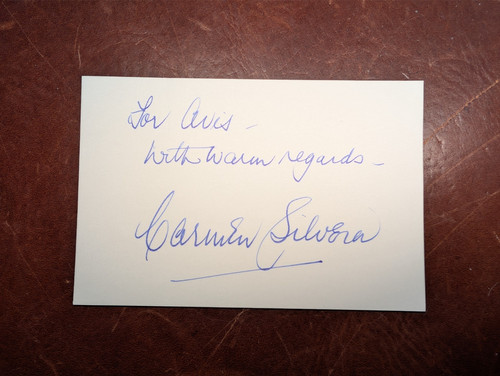 For Avis –
With warm regards –
Carmen Silvera